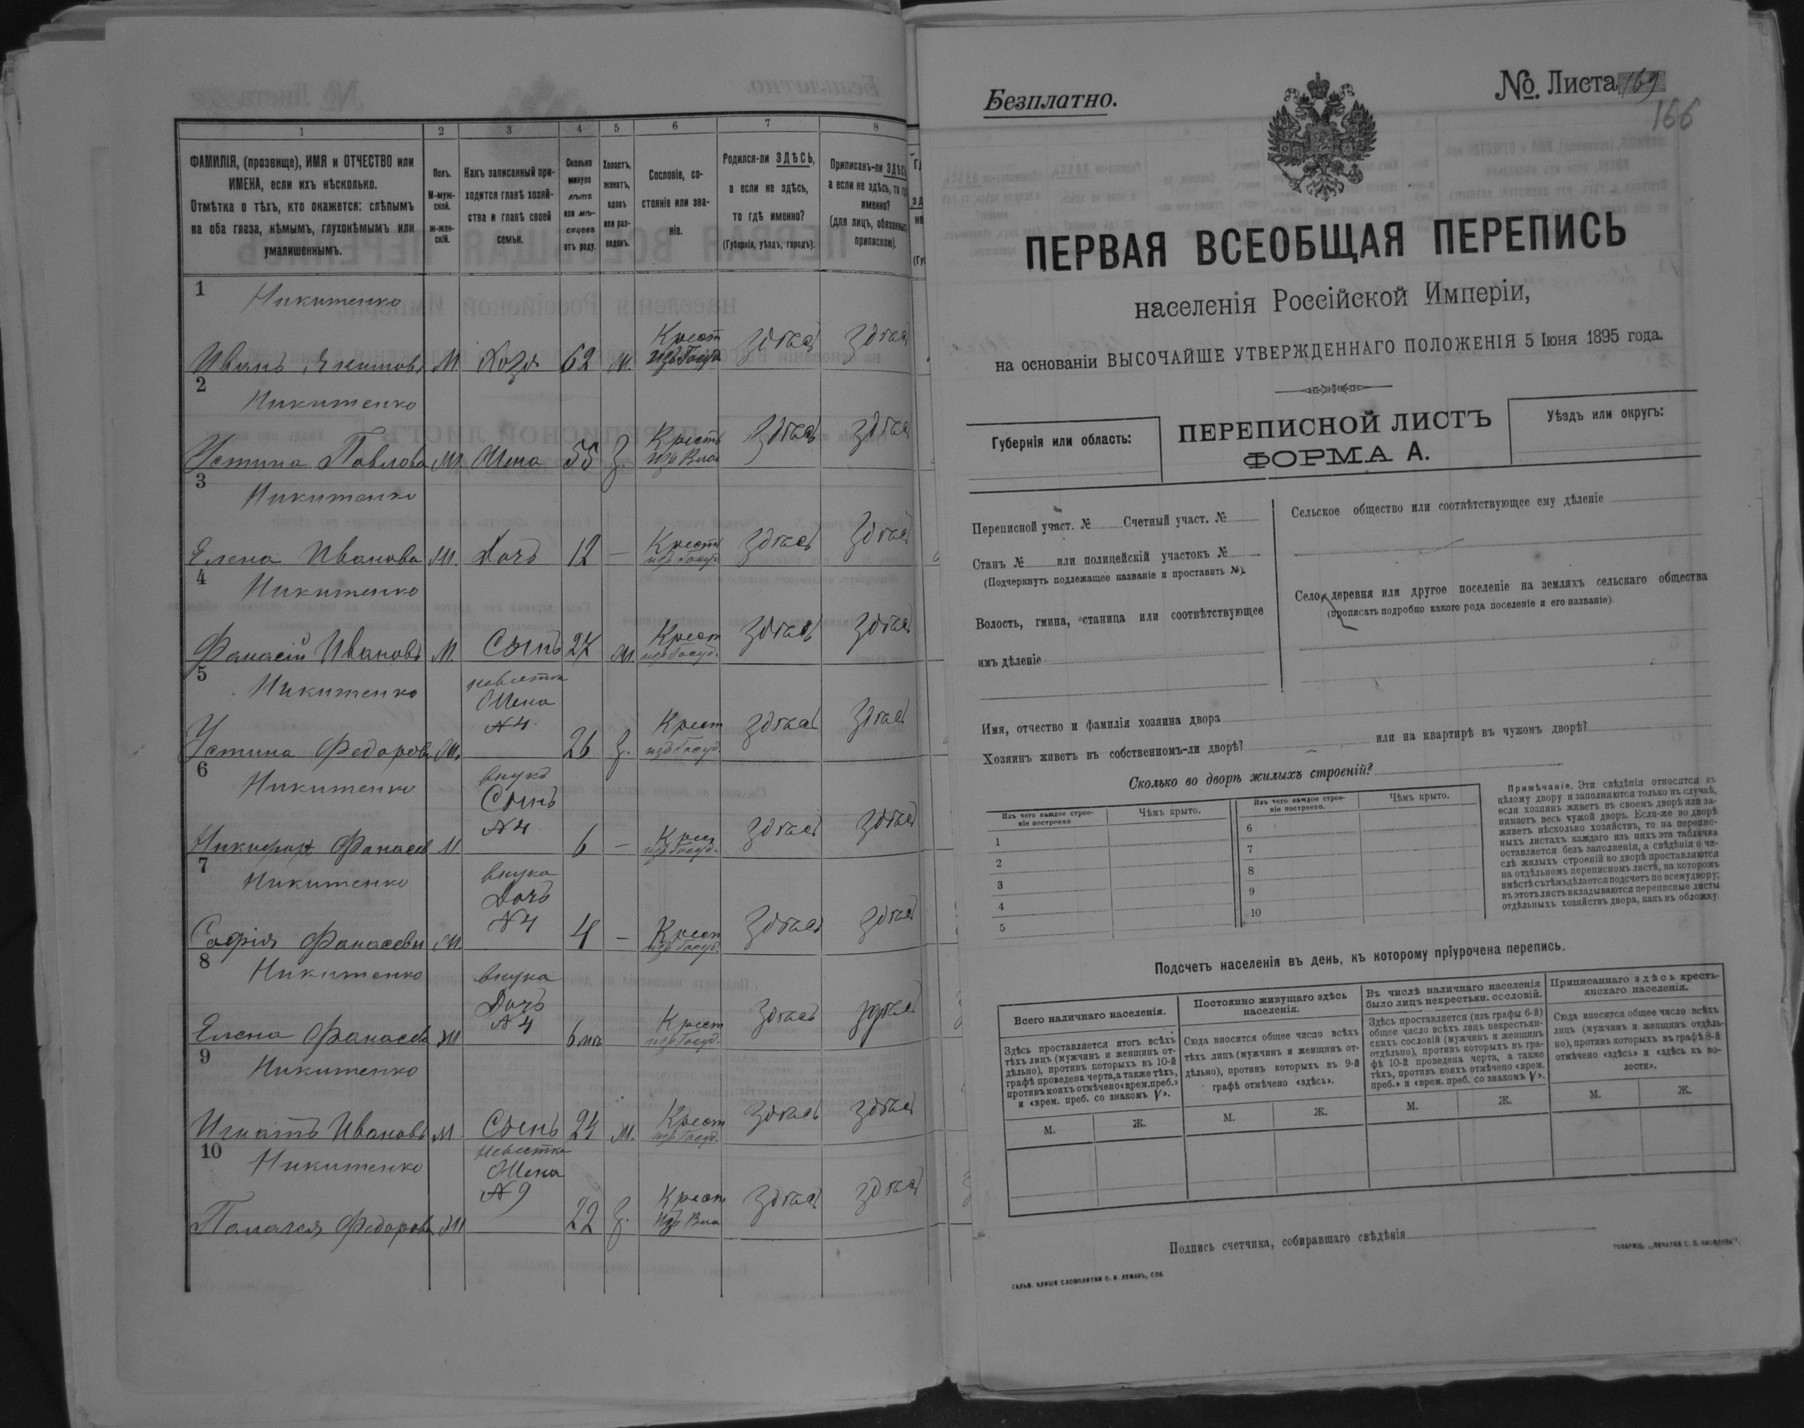 1 2 3 4 5 6 7 8
ФАМИЛІЯ, (прозвище), ИМЯ и ОТЧЕСТВО или
ИМЕНА, если ихъ нѣсколько.
Отмѣтка о тѣхъ, кто окажется: слѣпымъ
на оба глаза, нѣмымъ, глухонѣмымъ или
умалишеннымъ.
Полъ.
М-муж-
ской.
Ж-жен-
скій.
Какъ записанный при-
ходится главѣ хозяй-
ства и главѣ своей
семьи.
Сколько
минуло
лѣтъ
или мѣ-
сяцевъ
отъ роду.
Холостъ,
женатъ,
вдовъ
или раз-
веденъ.
Сословіе, со-
стояніе или зва-
ніе.
Родился-ли ЗДѢСЬ,
а если не здѣсь,
то гдѣ именно?
(Губернія, уѣздъ, городъ).
Приписанъ-ли ЗДѢСЬ
а если не здѣсь, то
именно?
(для лицъ, обязанныхъ
припискою).
1 Никитенко
Иванъ М Хозя 62 Ж. Крест изъ Госуд здѣсь здѣсь
2 Никитенко
Устина Павлова Ж Жена 55 З. Крестъ изъ Вла здѣсь здѣсь
3 Никитенко
Елена Иванова Ж. Дочь 12 — Крестъ изъ Госуд здѣсь здѣсь
4 Никитенко
Фанасій Ивановъ М. Сынъ 27 Ж. Крест изъ Госуд. здѣсь здѣсь
5 Никитенко невѣстка
Жена
№4
Устина Федорова Ж. 26 З. Крест изъ Госуд. здѣсь здѣсь
6 Никитенко внукъ
Сынъ
№4
Никифор Фанасев М 6 — Крест изъ Госуд. здѣсь здѣсь
7 Никитенко внука
Дочь
№4
Софія Фанасевы Ж. 4 — Крест изъ Госуд. здѣсь здѣсь
8 Никитенко внука
Дочь
№4
Елена Фанасева Ж 6 мѣс Крест изъ Госуд. здѣсь здѣсь
9 Никитенко
Игнатъ Ивановъ М Сынъ 24 Ж. Крест изъ Госуд. здѣсь здѣсь
10 Никитенко невѣстка
Жена
№9
Палажея Федорова Ж 22 З. Крест изъ Вла здѣсь здѣсь
Безплатно.
№. Листа 169
166
ПЕРВАЯ ВСЕОБЩАЯ ПЕРЕПИСЬ
населенія Россійской Имперіи,
на основаніи ВЫСОЧАЙШЕ УТВЕРЖДЕННАГО ПОЛОЖЕНІЯ 5 Іюня 1895 года.
Губернія или область:
ПЕРЕПИСНОЙ ЛИСТЪ
ФОРМА А.
Уѣздъ или округъ:
Переписной участ. № Счетный участ. №
Станъ № или полицейскій участокъ №
(Подчеркнуть подлежащее названіе и проставить №).
Волость, гмина, станица или соотвѣтствующее
имъ дѣленіе
Сельское общество или соотвѣтствующее ему дѣленіе
Село, деревня или другое поселеніе на земляхъ сельскаго общества
(прописать подробно какого рода поселеніе и его названіе).
Имя, отчество и фамилія хозяина двора
Хозяинъ живетъ въ собственномъ-ли дворѣ? или на квартирѣ въ чужомъ дворѣ?
Сколько во дворѣ жилыхъ строеній?
Изъ чего каждое строе-
ніе построено
Чѣмъ крыто.
Изъ чего каждое строе-
ніе построено.
Чѣмъ крыто.
1 6
2 7
3 8
4 9
5 10
Примѣчаніе. Эти свѣдѣнія относятся къ
цѣлому двору и заполняются только въ случаѣ,
если хозяинъ живетъ въ своемъ дворѣ или за-
нимаетъ весь чужой дворъ. Если-же во дворѣ
живетъ нѣсколько хозяйствъ, то на перепис-
ныхъ листахъ каждаго изъ нихъ эта табличка
оставляется безъ заполненія, а свѣдѣнія о чи-
слѣ жилыхъ строеній во дворѣ проставляются
на отдѣльномъ переписномъ листѣ, на которомъ
вмѣстѣ съ тѣмъ дѣлается подсчетъ по всему двору;
въ этотъ листъ вкладываются переписные листы
отдѣльныхъ хозяйствъ двора, какъ въ обложку.
Подсчетъ населенія въ день, къ которому пріурочена перепись.
Всего наличнаго населенія.
Постоянно живущаго здѣсь
населенія.
Въ числѣ наличнаго населенія
было лицъ некрестьян. сословій.
Приписаннаго здѣсь кресть-
янскаго населенія.
Здѣсь проставляется итогъ всѣхъ
тѣхъ лицъ (мужчинъ и женщинъ от-
дѣльно), противъ которыхъ въ 10-й
графѣ проведена черта, а также тѣхъ,
противъ коихъ отмѣчено «врем. преб.»
и «врем. преб. со знакомъ V».
Сюда вносится общее число всѣхъ
тѣхъ лицъ (мужчинъ и женщинъ от-
дѣльно), противъ которыхъ въ 9-й
графѣ отмѣчено «здѣсь».
Здѣсь проставляется (изъ графы 6-й)
общее число всѣхъ лицъ некрестьян-
скихъ сословій (мужчинъ и женщинъ
отдѣльно), противъ которыхъ въ гра-
фѣ 10-й проведена черта, а также
тѣхъ, противъ коихъ отмѣчено «врем.
преб.» и «врем. преб. со знакомъ V».
Сюда вносится общее число всѣхъ
лицъ (мужчинъ и женщинъ отдѣль-
но), противъ которыхъ въ графѣ 8-й
отмѣчено «здѣсь» и «здѣсь къ во-
лости».
М. Ж. М. Ж. М. Ж. М. Ж.
Подпись счетчика, собиравшаго свѣдѣнія